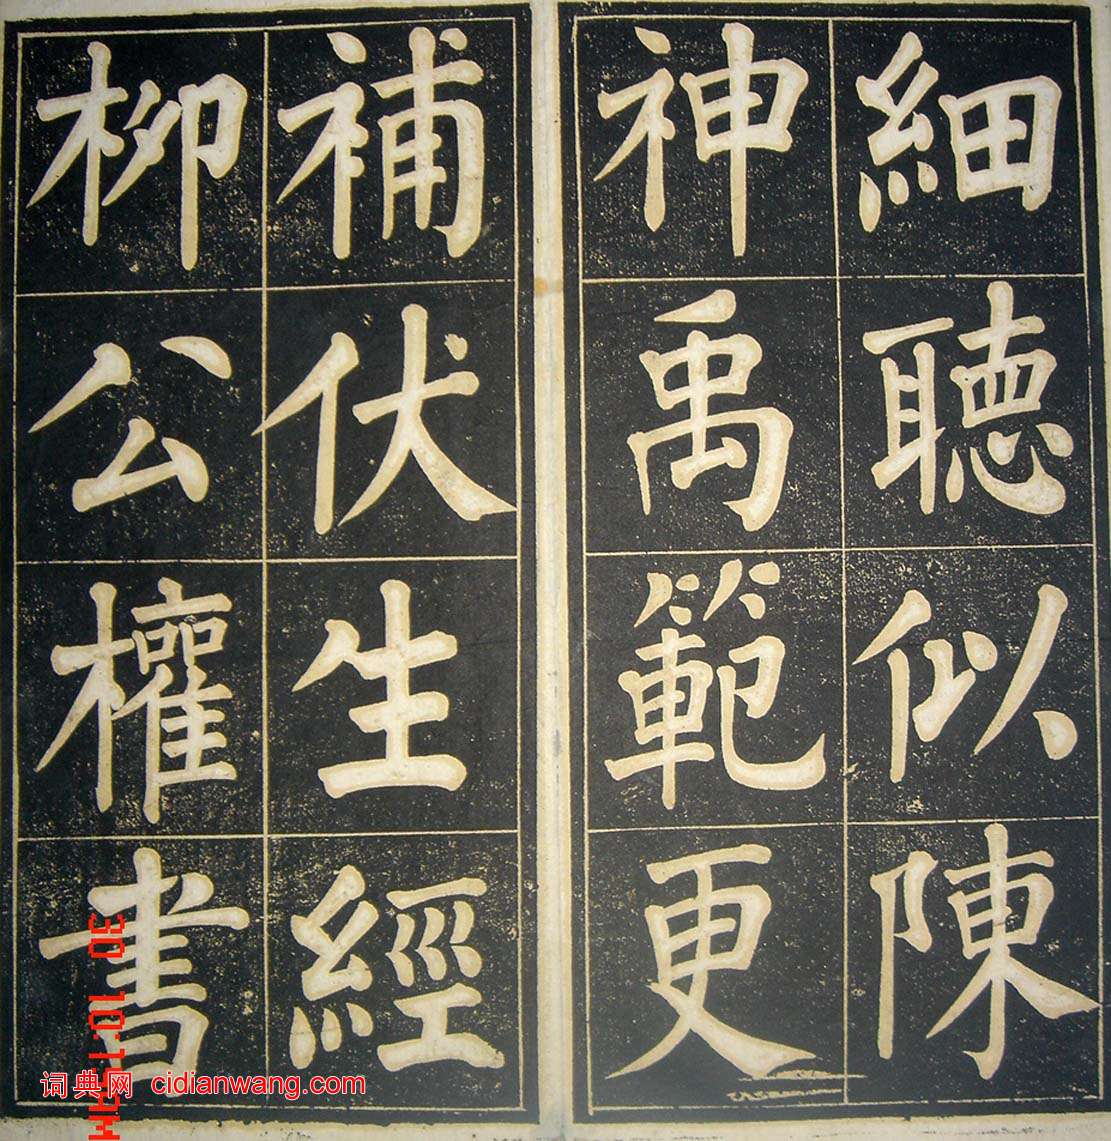 細聽似陳
神禹範更
補伏生經
柳公權書
词典网 cidianwang.com